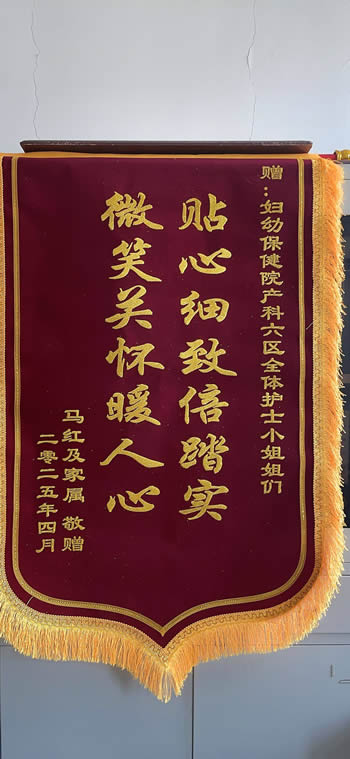 赠：妇幼保健院产科六区全体护士小姐姐们
贴心细致倍踏实
微笑关怀暖人心
马红及家属 敬赠
二零二五年四月